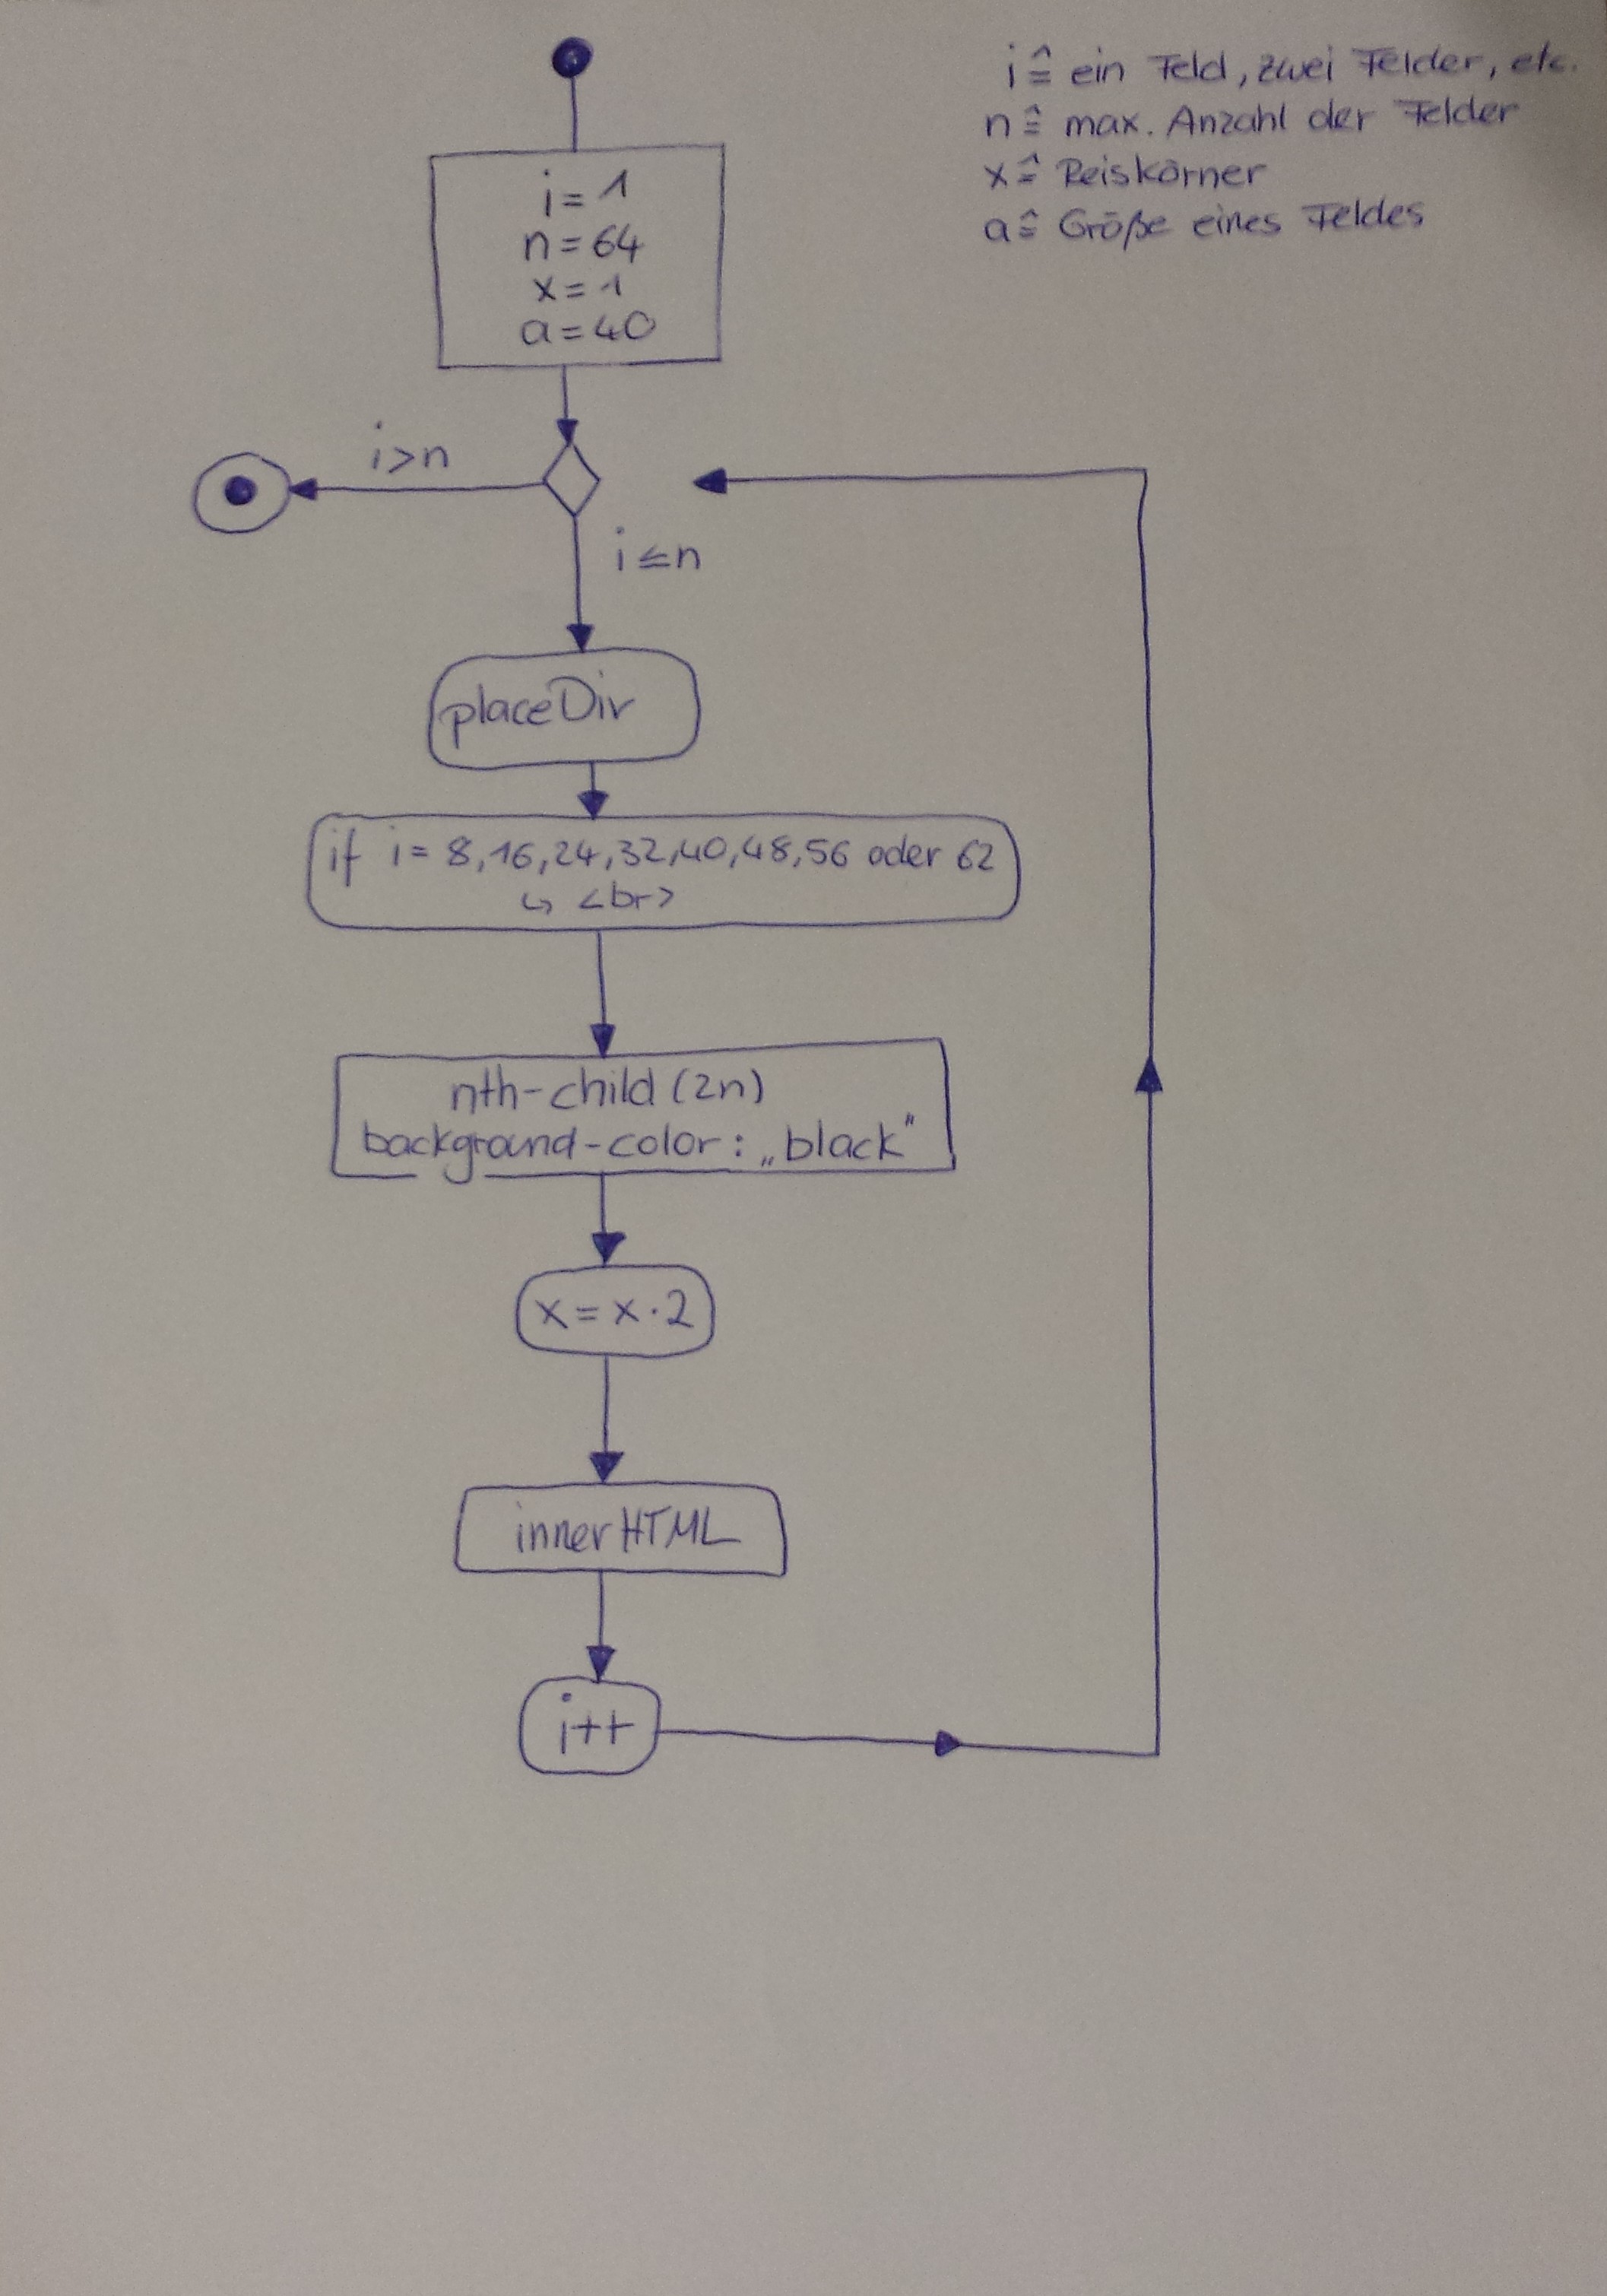 i ≙ ein Feld, zwei Felder, etc.
n ≙ max. Anzahl der Felder
x ≙ Reiskörner
a ≙ Größe eines Feldes
i = 1
n = 64
x = 1
a = 40
i>n
i≤n
placeDiv
if i = 8,16,24,32,40,48,56 oder 62
↳ <br>
nth-child (2n)
background-color: „black"
x = x · 2
innerHTML
i++